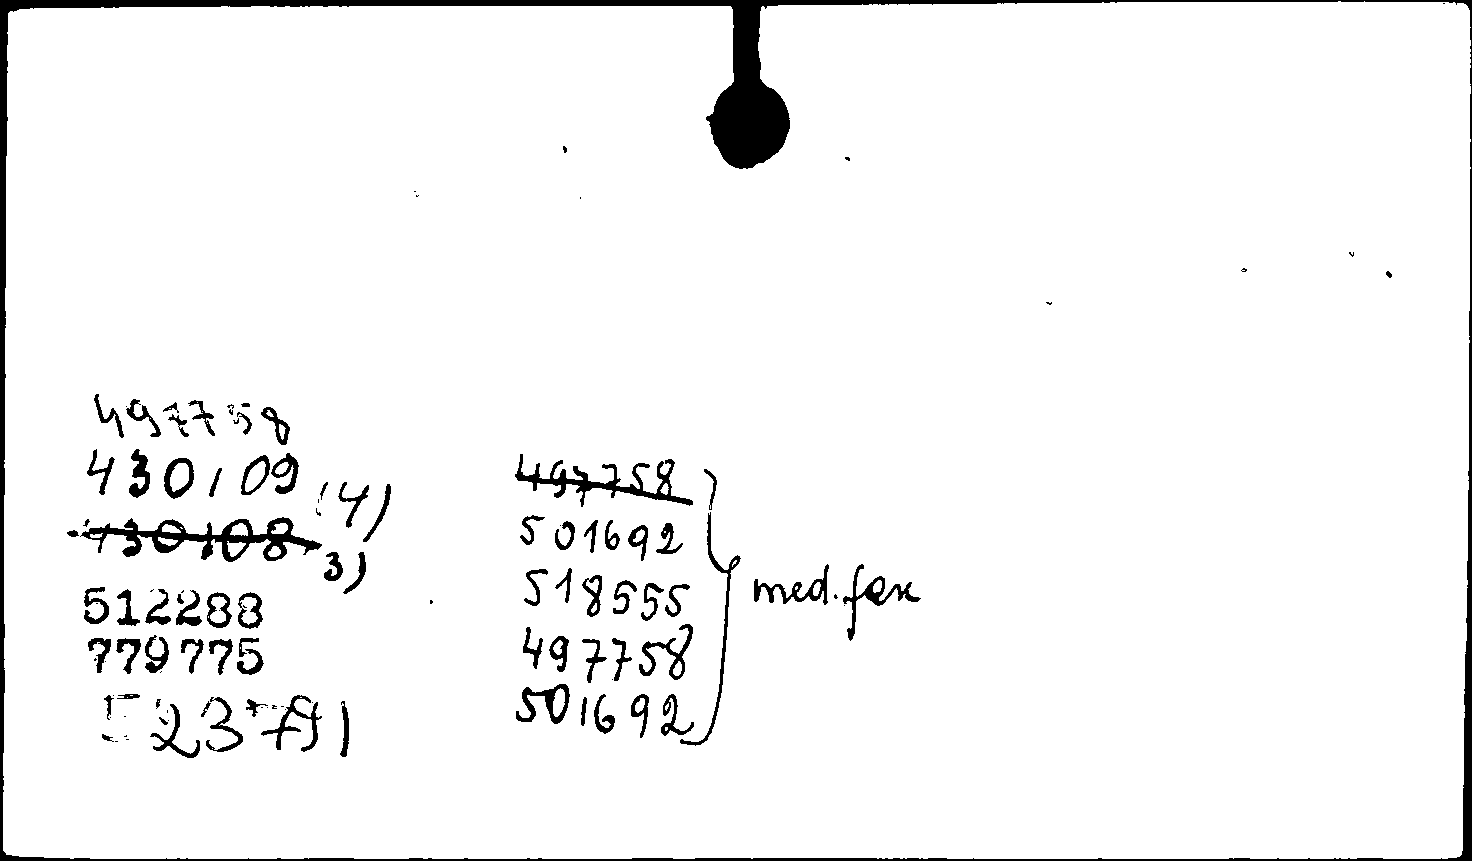 497758
430109 (4)
430108 3)
512288
779775
523791
497758
501692
518555
497758
501692
med. fax